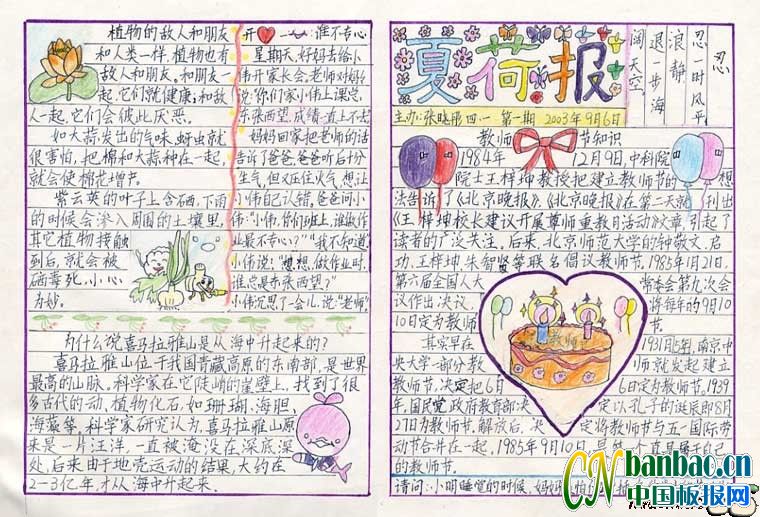 植物的敌人和朋友
和人类一样,植物也有
敌人和朋友。和朋友一
起,它们就健康;和敌
人一起,它们会彼此厌恶。
如大蒜发出的气味,蚜虫就
很害怕,把棉和大蒜种在一起,
就会使棉花增产。
紫云英的叶子上含硒,下雨
的时候会渗入周围的土壤里,
其它植物接触
到后,就会被
毒死,小心
为妙。
开心一 谁不专心
星期天,好妈去给小
伟开家长会,老师对妈妈
说:“你们家小伟上课总
东张西望,成绩一直上不去
妈妈回家把老师的话
告诉了爸爸,爸爸听后十分
生气,但又压住火气,想让
小伟自己认错,爸爸问小
伟:“小伟,你们班上,谁做作
业最不专心?”“我不知道,”
小伟说;“想想,做作业时,
谁总是东张西望?”
小伟沉思了一会儿,说:“老师”,
为什么说喜马拉雅山是从海中升起来的?
喜马拉雅山位于我国青藏高原的东南部,是世界
最高的山脉。科学家在它陡峭的崖壁上,找到了很
多古代的动、植物化石,如珊瑚、海胆,
海藻等,科学家研究认为,喜马拉雅山原
来是一片汪洋,一直被淹没在深底深
处,后来由于地壳运动的结果,大约在
2-3亿年才从海中升起来.
夏荷报
忍
忍一时风平
浪静
退一步海
阔天空
主办:张晓 四.一 第一期 2003年9月6日
教师节知识
1984年 12月9日,中科院
院士王梓坤教授把建立教师节的想
法告诉了《北京晚报》《北京晚报》在第二天就刊出
《王梓坤校长建议开展尊师重教日活动》文章,引起了
读者的广泛关注。后来,北京师范大学的钟敬文、启
功、王梓坤、朱智贤等联名倡议教师节。1985年1月21日,
第六届全国人大常委会第九次会
议作出决议,将每年的9月10
10日定为教师
其实早在1931年5月,南京中
央大学一部分教师就发起建立
教师节,决定把6月6日定为教师节。1939
年,国民党政府教育部决定以孔子的诞辰即8月
27日为教师节。解放后,决定将教师节与五一国际劳
动节合并在一起。1985年9月10日,是第一个真是属于自己
的教师节。
请问:小明睡觉的时候,妈妈
CNbanbao.cn
中国板报网